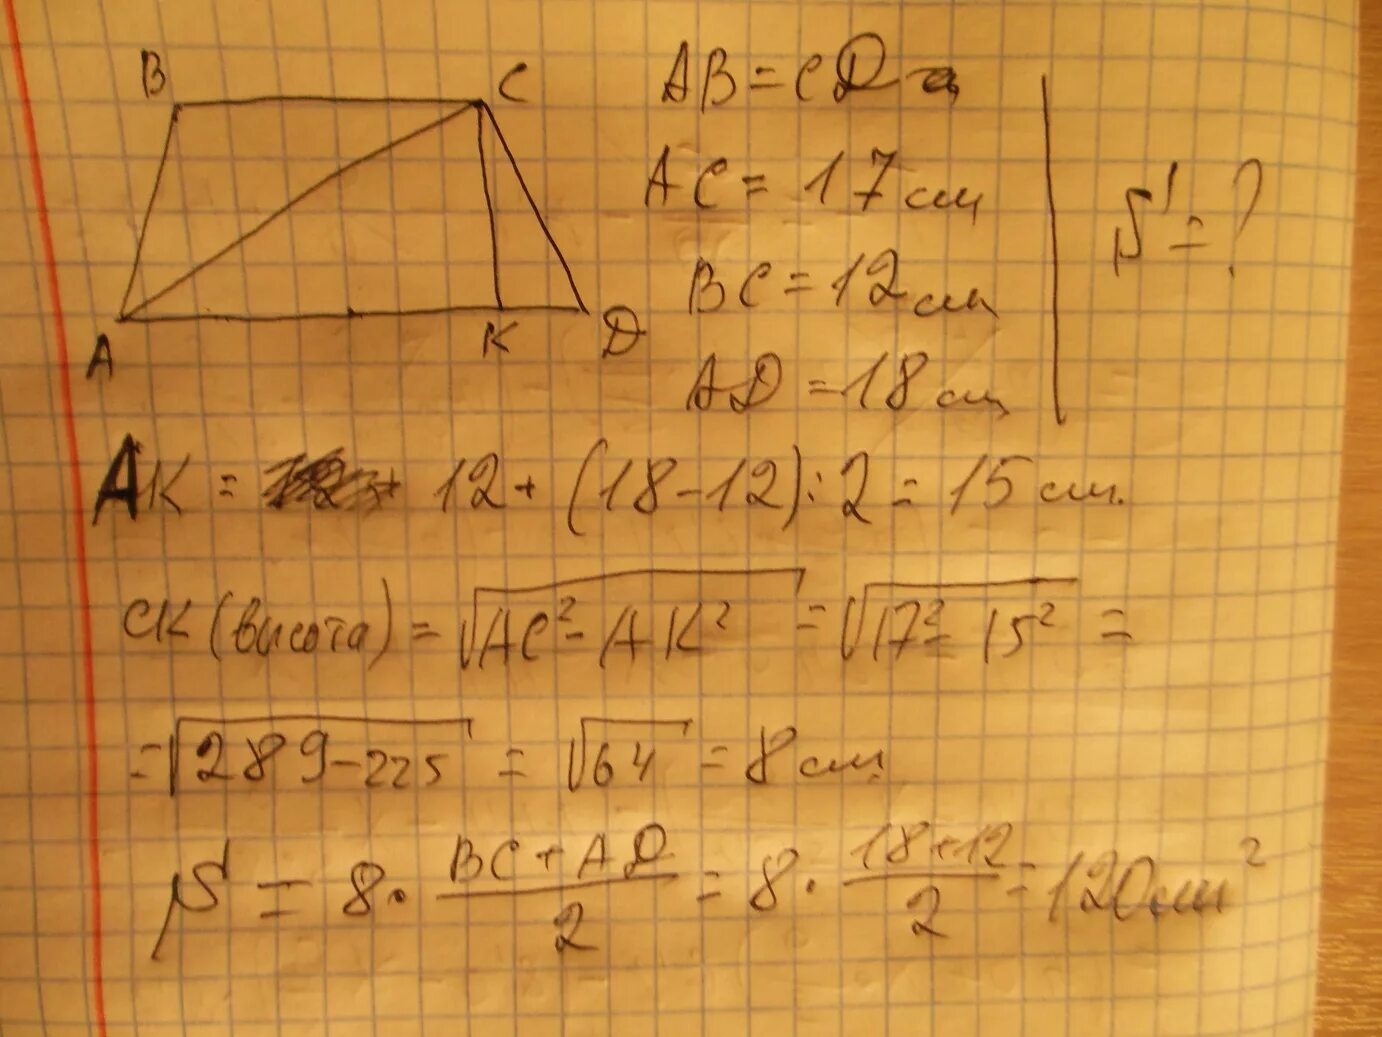 B C
A K D
AB = CD
AC = 17 см
BC = 12 см
AD = 18 см
S = ?
AK = 12 + (18 - 12) : 2 = 15 см.
CK (висота) = √AC² - AK² = √17² - 15² =
= √289 - 225 = √64 = 8 см
S = 8 · (BC + AD)/2 = 8 · (18 + 12)/2 = 120 см²